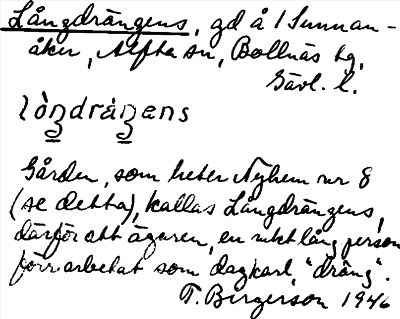 Långdrängens, gd å 1 Sunnan-
åker, Alfta sn, Bollnäs tg,
Gävl. l.
Gården, som heter Nyhem nr 8
(se detta), kallas Långdrängens,
därför att ägaren, en mkt lång person
förr arbetat som dagkarl, "dräng".
T. Bergerson 1946